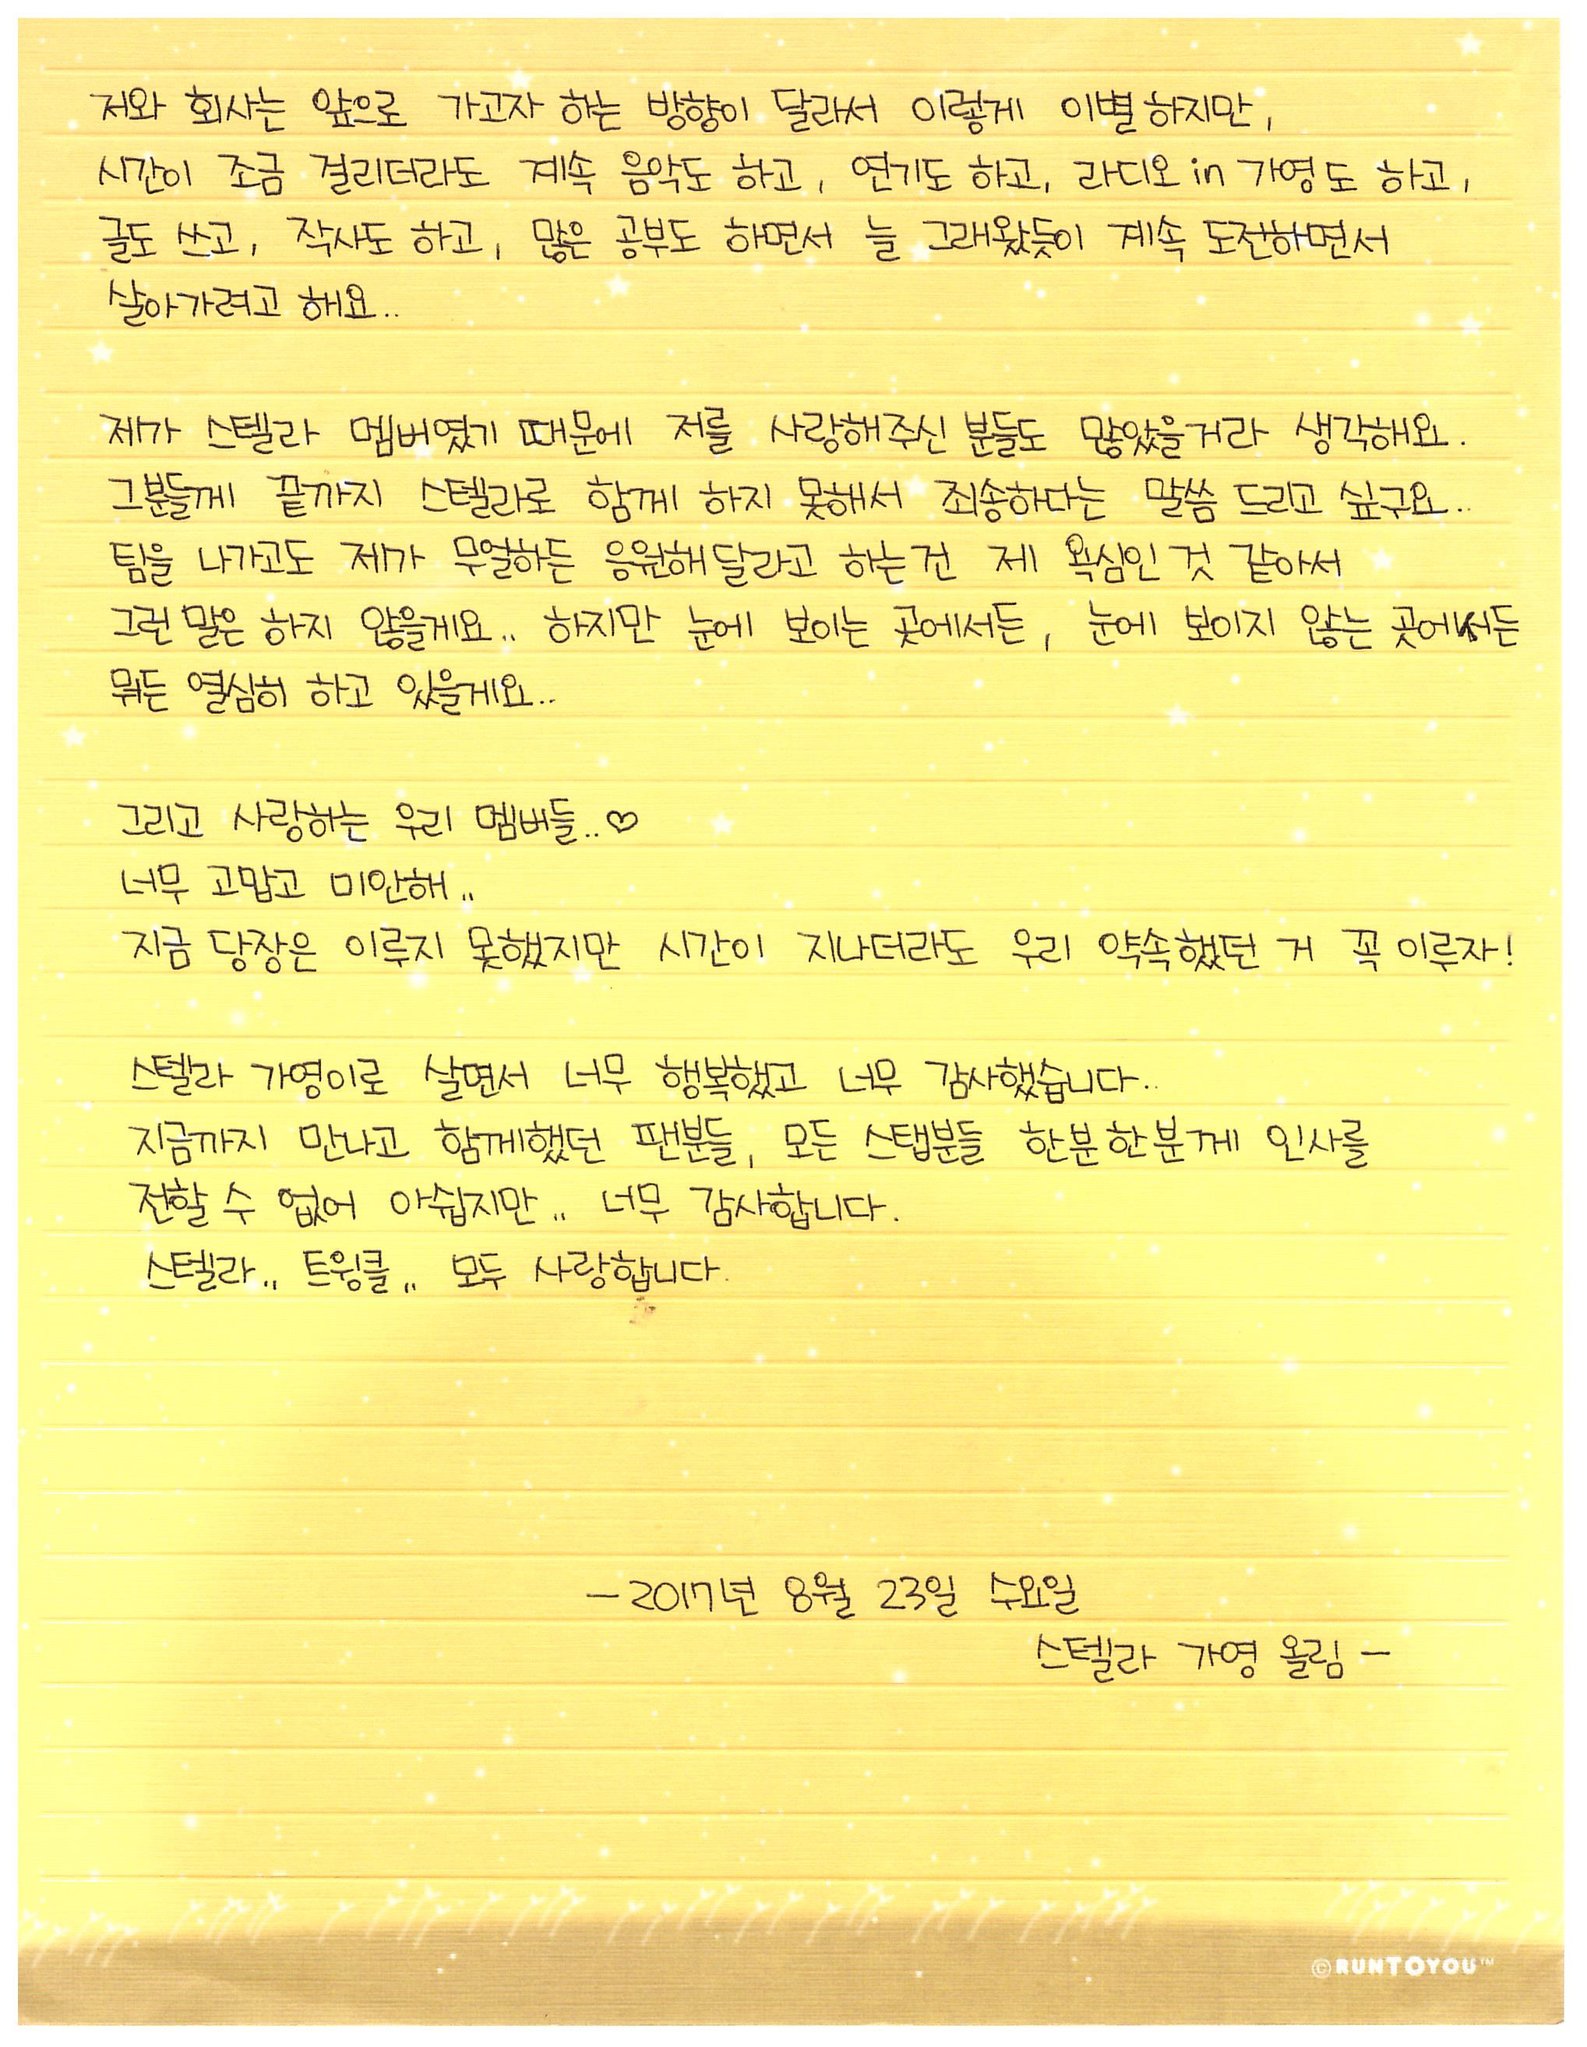 저와 회사는 앞으로 가고자 하는 방향이 달라서 이렇게 이별하지만,
시간이 조금 걸리더라도 계속 음악도 하고, 연기도 하고, 라디오 in 가영도 하고,
글도 쓰고, 작사도 하고, 많은 공부도 하면서 늘 그래왔듯이 계속 도전하면서
살아가려고 해요..
제가 스텔라 멤버였기 때문에 저를 사랑해주신 분들도 많았을거라 생각해요.
그분들께 끝까지 스텔라로 함께 하지 못해서 죄송하다는 말씀 드리고 싶구요..
팀을 나가고도 제가 무얼하든 응원해달라고 하는건 제 욕심인 것 같아서
그런 말은 하지 않을게요.. 하지만 눈에 보이는 곳에서든, 눈에 보이지 않는 곳에서든
뭐든 열심히 하고 있을게요..
그리고 사랑하는 우리 멤버들..♡
너무 고맙고 미안해..
지금 당장은 이루지 못했지만 시간이 지나더라도 우리 약속했던 거 꼭 이루자!
스텔라 가영이로 살면서 너무 행복했고 너무 감사했습니다..
지금까지 만나고 함께했던 팬분들, 모든 스탭분들 한분한분께 인사를
전할 수 없어 아쉽지만.. 너무 감사합니다.
스텔라.. 트윙클.. 모두 사랑합니다.
-2017년 8월 23일 수요일
스텔라 가영 올림-
©RUNTOYOU™